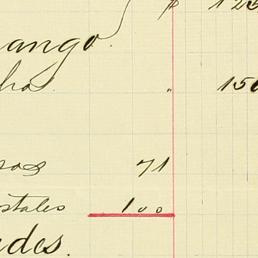 $ 125
ango.
hos " 150
sos 71
stales 100
des.